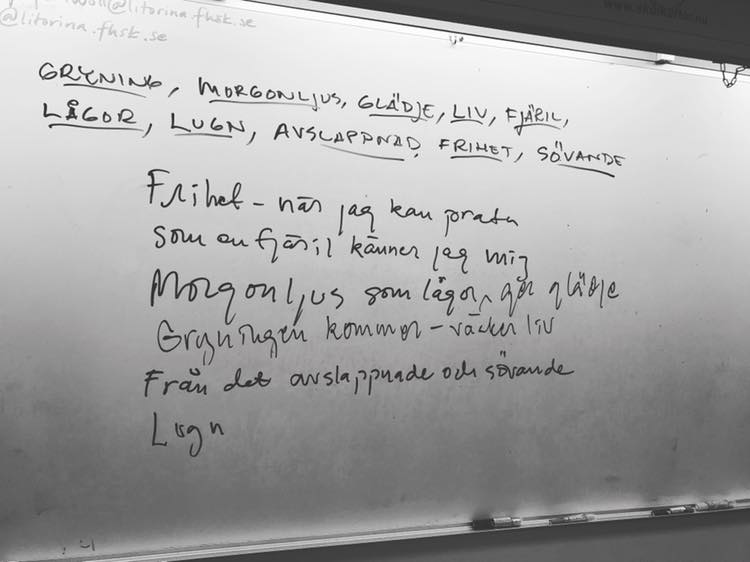 @litorina.fhsk.se
@litorina.fhsk.se
GRYNING, MORGONLJUS, GLÄDJE, LIV, FJÄRIL,
LÅGOR, LUGN, AVSLAPPNAD, FRIHET, SÖVANDE
Frihet - när jag kan prata
som en fjäril känner jag mig
Morgonljus som lågor, gör glädje
Gryningen kommer - väcker liv
Från det avslappnade och sövande
Lugn